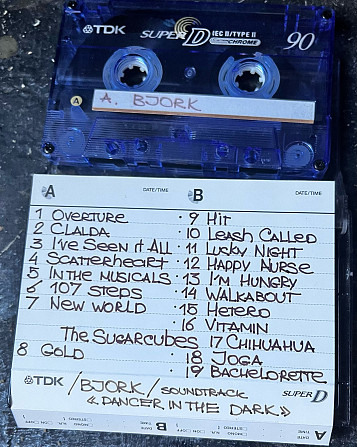 TDK SUPER D IEC II/TYPE II 90
A A. BJORK
A DATE/TIME B DATE/TIME
1 OVERTURE · 9 Hit
2 CLALDA · 10 Leash Called
3 I've Seen it All · 11 Lusky Night
4 Scatterheart · 12 Happy Nurse
5 In the musicals · 13 I'm Hungry
6 107 steps · 14 Walkabout
7 New World · 15 Hetero
16 Vitamin
The Sugarcubes 17 Chihuahua
8 Gold 18 Joga
19 Bachelorette
TDK / BJORK / SOUNDTRACK SUPER D
« DANCER IN THE DARK »
A
B